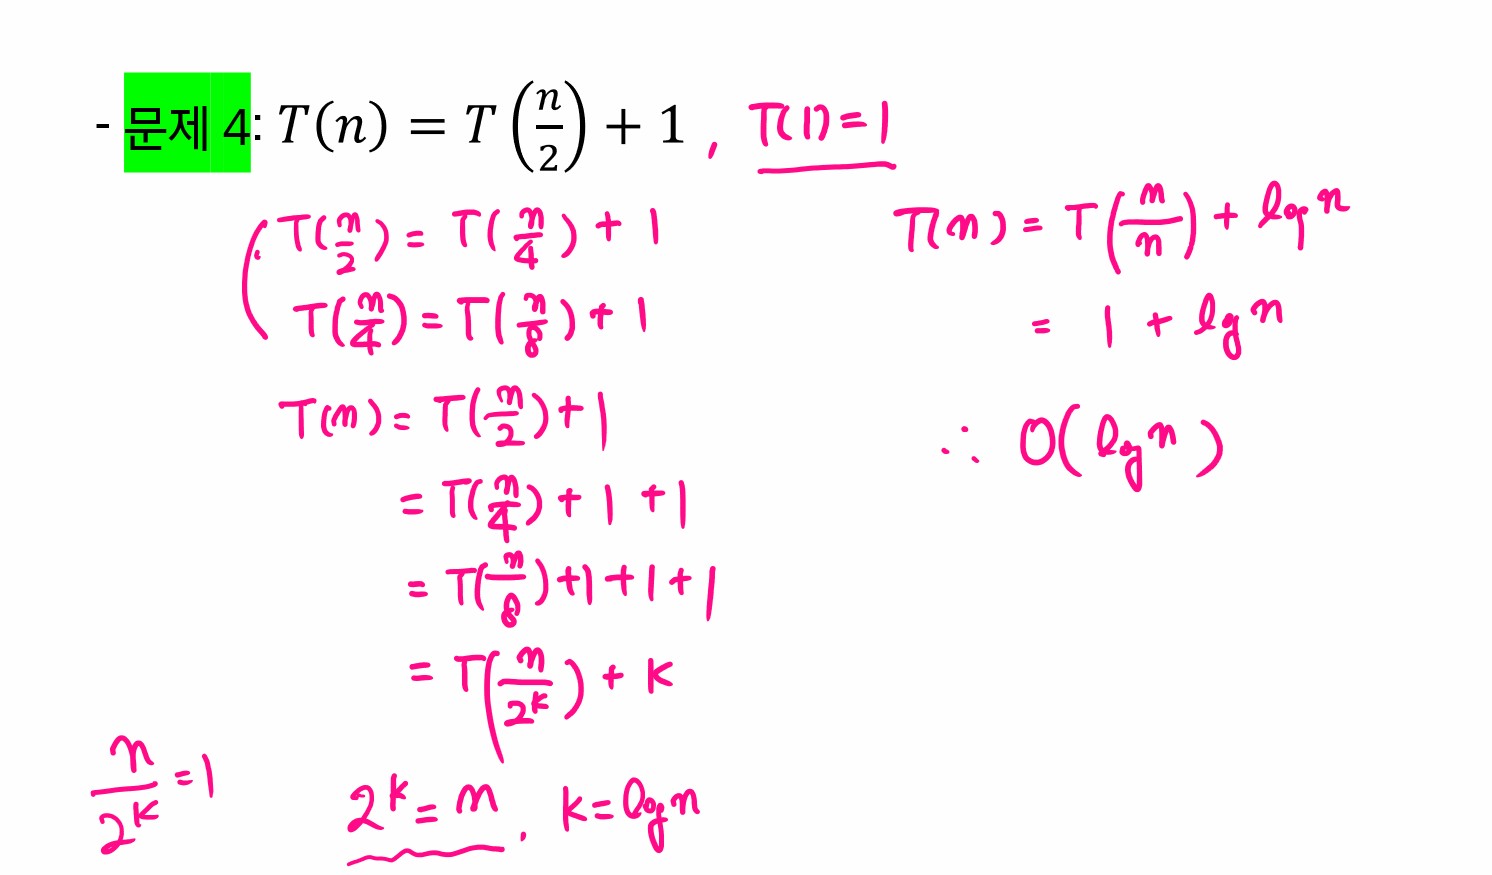 - 문제 4: T(n) = T(n/2) + 1 , T(1) = 1
T(n/2) = T(n/4) + 1
T(n/4) = T(n/8) + 1
T(n) = T(n/2) + 1
= T(n/4) + 1 + 1
= T(n/8) + 1 + 1 + 1
= T(n/2^k) + k
n/2^k = 1
2^k = n , k = log n
T(n) = T(n/n) + log n
= 1 + log n
∴ O(log n)